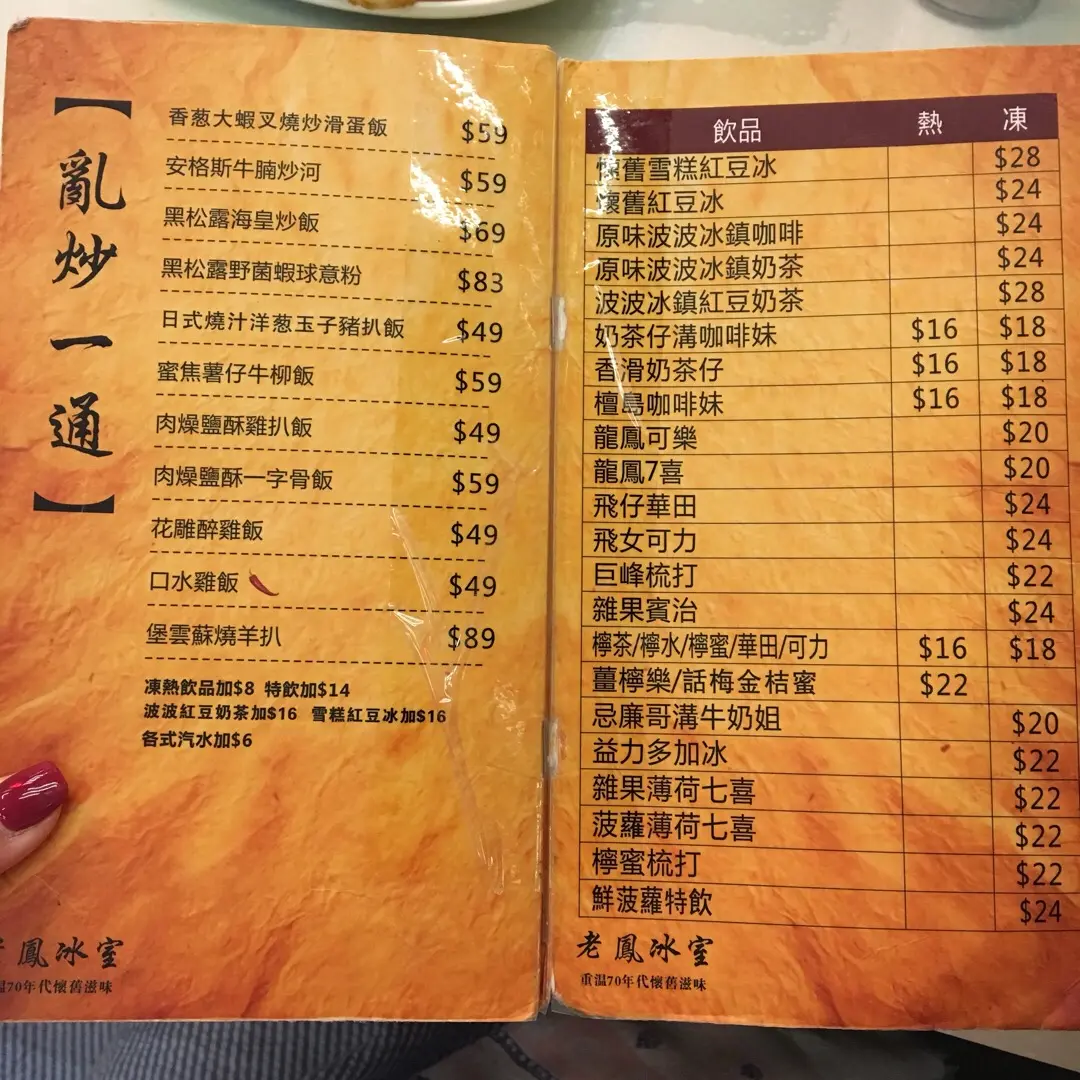 【亂炒一通】
香葱大蝦叉燒炒滑蛋飯 $59
安格斯牛腩炒河 $59
黑松露海皇炒飯 $69
黑松露野菌蝦球意粉 $83
日式燒汁洋葱玉子豬扒飯 $49
蜜焦薯仔牛柳飯 $59
肉燥鹽酥雞扒飯 $49
肉燥鹽酥一字骨飯 $59
花雕醉雞飯 $49
口水雞飯 $49
堡雲蘇燒羊扒 $89
凍熱飲品加$8 特飲加$14
波波紅豆奶茶加$16 雪糕紅豆冰加$16
各式汽水加$6
鳳冰室
70年代懷舊滋味
飲品 熱 凍
懷舊雪糕紅豆冰 $28
懷舊紅豆冰 $24
原味波波冰鎮咖啡 $24
原味波波冰鎮奶茶 $24
波波冰鎮紅豆奶茶 $28
奶茶仔溝咖啡妹 $16 $18
香滑奶茶仔 $16 $18
檀島咖啡妹 $16 $18
龍鳳可樂 $20
龍鳳7喜 $20
飛仔華田 $24
飛女可力 $24
巨峰梳打 $22
雜果賓治 $24
檸茶/檸水/檸蜜/華田/可力 $16 $18
薑檸樂/話梅金桔蜜 $22
忌廉哥溝牛奶姐 $20
益力多加冰 $22
雜果薄荷七喜 $22
菠蘿薄荷七喜 $22
檸蜜梳打 $22
鮮菠蘿特飲 $24
老鳳冰室
重温70年代懷舊滋味